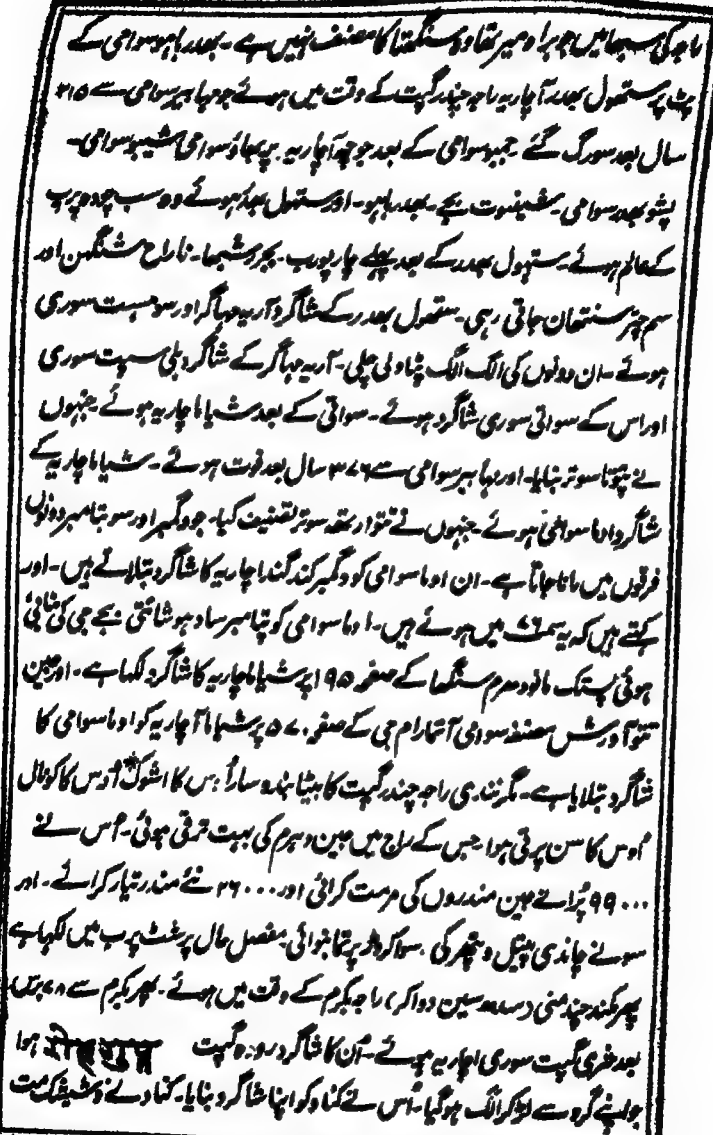 راجہ کی سبھا میں جو براہ میر تھا وہ سنگھتا کا مصنف نہیں ہے۔ بھدر باہو سوامی کے
پٹ پر ستھول بھدر آچاریہ راجہ چندر گپت کے وقت میں ہوئے جو مہابیر سوامی سے ۲۱۵
سال بعد سورگ گئے۔ جمبو سوامی کے بعد جو چھ آچاریہ۔ پربھاؤ سوامی شیبو سوامی۔
یشو بھدر سوامی۔ بجے۔ بھدر باہو۔ اور ستھول بھدر ہوئے وہ سب چودہ پرب
کے عالم ہوئے۔ ستھول بھدر کے بعد پہلے چار پورب۔ ناراح سنگھن اور
سم چتر سنتھان جاتی رہی۔ ستھول بھدر کے شاگرد آریہ مہاگر اور سوہست سوری
ہوئے۔ ان دونوں کی الگ الگ پٹاولی چلی۔ آریہ مہاگر کے شاگرد بلی سہت سوری
اور اس کے سواتی سوری شاگرد ہوئے۔ سواتی کے بعد شیاما چاریہ ہوئے جنہوں
نے پنوّنا سوتر بنایا۔ اور مہابیر سوامی سے ۳۷۶ سال بعد فوت ہوئے۔ شیاما چاریہ کے
شاگرد اوما سوامی ہوئے۔ جنہوں نے تتوارتھ سوتر تصنیف کیا۔ جو دگمبر اور سوتیامبر دونوں
فرقوں میں مانا جاتا ہے۔ ان اوما سوامی کو دگمبر کند کندا چاریہ کا شاگرد بتلاتے ہیں۔ اور
کہتے ہیں کہ یہ سمت ۷۶ میں ہوئے ہیں۔ اوما سوامی کو پتامبر سادہو شانتی بجے جی کی بنائی
ہوئی پستک مانو دھرم سنگھا کے صفحہ ۱۹۵ پر شیاما چاریہ کا شاگرد لکھا ہے۔ اور جین
تتوآدرش مصنفہ سوامی آتمارام جی کے صفحہ ۵۷۰ پر شیاماآچاریہ کو اوما سوامی کا
شاگرد بتلایا ہے۔ مگر نندی راجہ چندر گپت کا بیٹا بندوسار اُس کا اشوک اُوس کا کونال
اُوس کا سن پرتی ہوا۔ جس کے راج میں جین دھرم کی بہت ترقی ہوئی۔ اُس نے
۹۹۰۰۰ پُرانے جین مندروں کی مرمت کرائی اور ۲۶۰۰۰ نئے مندر تیار کرائے۔ اور
سونے چاندی پیتل و پتھر کی سوا کروڑ پرتما بنوائی۔ مفصل حال پرشٹ پرب میں لکھا ہے
پھر مکند چند منی (سدھ سین دواکر) راجہ بکرم کے وقت میں ہوئے۔ پھر بکرم سے ۷۸ برس
بعد شری گپت سوری اچاریہ ہوئے۔ اُن کا شاگرد روہ گپت रोहगुप्त ہوا
جو اپنے گرو سے لڑ کر الگ ہو گیا۔ اُس نے کناد کو اپنا شاگرد بنایا۔ کناد نے وشیشک مت